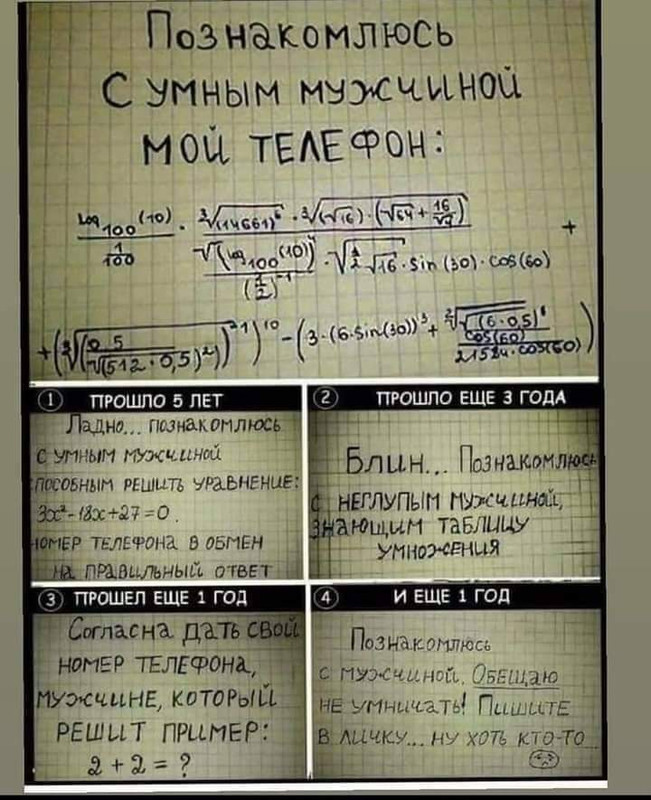 Познакомлюсь
с умным мужчиной
мой телефон:
Log₁₀₀(10) / (1/100) · ∛(14661)⁶ · ∛(√16)·(√64+16/√7)
√(Log₁₀₀(10))⁴ / (1/2)⁻¹ · √(1/2 √16 · sin(30) · cos(60) +
+(∛(0,5 / √(512·0,5)²))²¹)¹⁰ − (3·(6·sin(30))³ +
1 ПРОШЛО 5 ЛЕТ
Ладно... познакомлюсь
с умным мужчиной
способным решить уравнение:
3x²-18x+27=0.
номер телефона в обмен
на правильный ответ
2 ПРОШЛО ЕЩЕ 3 ГОДА
Блин... Познакомлюсь
с неглупым мужчиной,
знающим таблицу
умножения
3 ПРОШЕЛ ЕЩЕ 1 ГОД
Согласна дать свой
номер телефона,
мужчине, который
решит пример:
2 + 2 = ?
4 И ЕЩЕ 1 ГОД
Познакомлюсь
с мужчиной. Обещаю
не умничать! Пишите
в личку... ну хоть кто-то